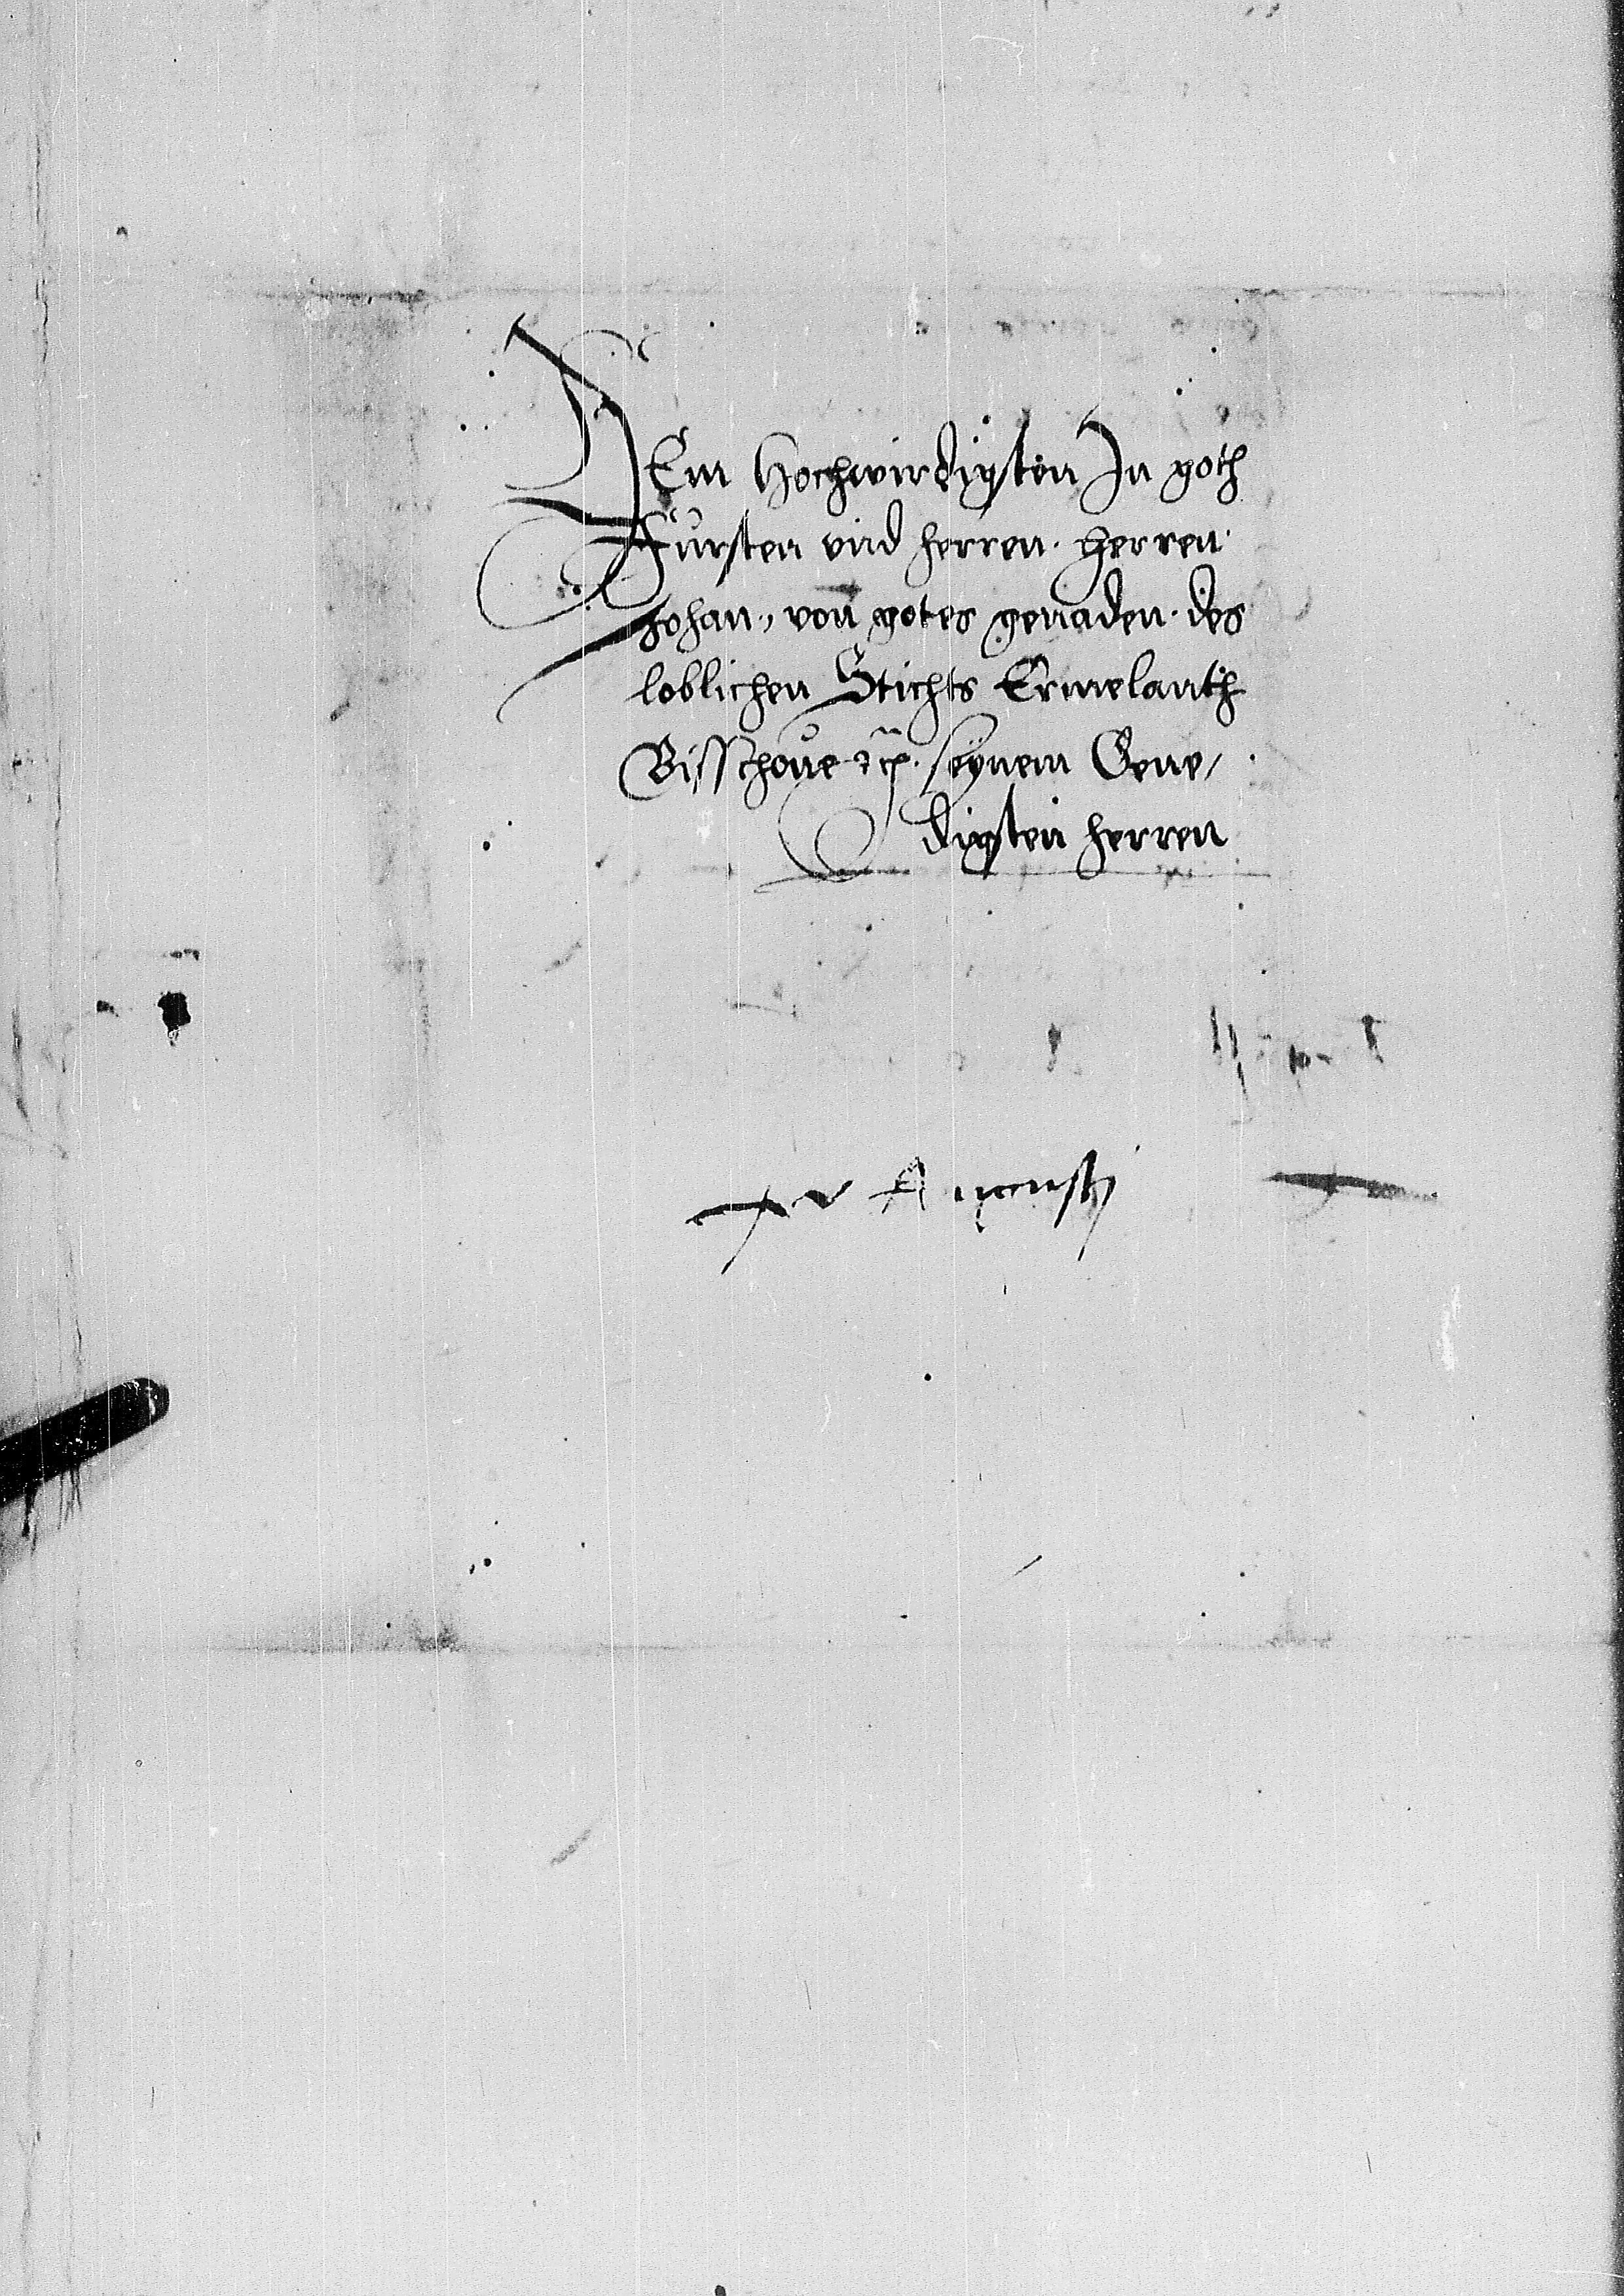 DEm Hochwirdigsten In goth
Fursten vnd herren. Herren
Johan., von gotes genaden. des
loblichen Stichts Ermelanth
Bisschoue etc. seynem Gene/
digsten herren
xv Augusti